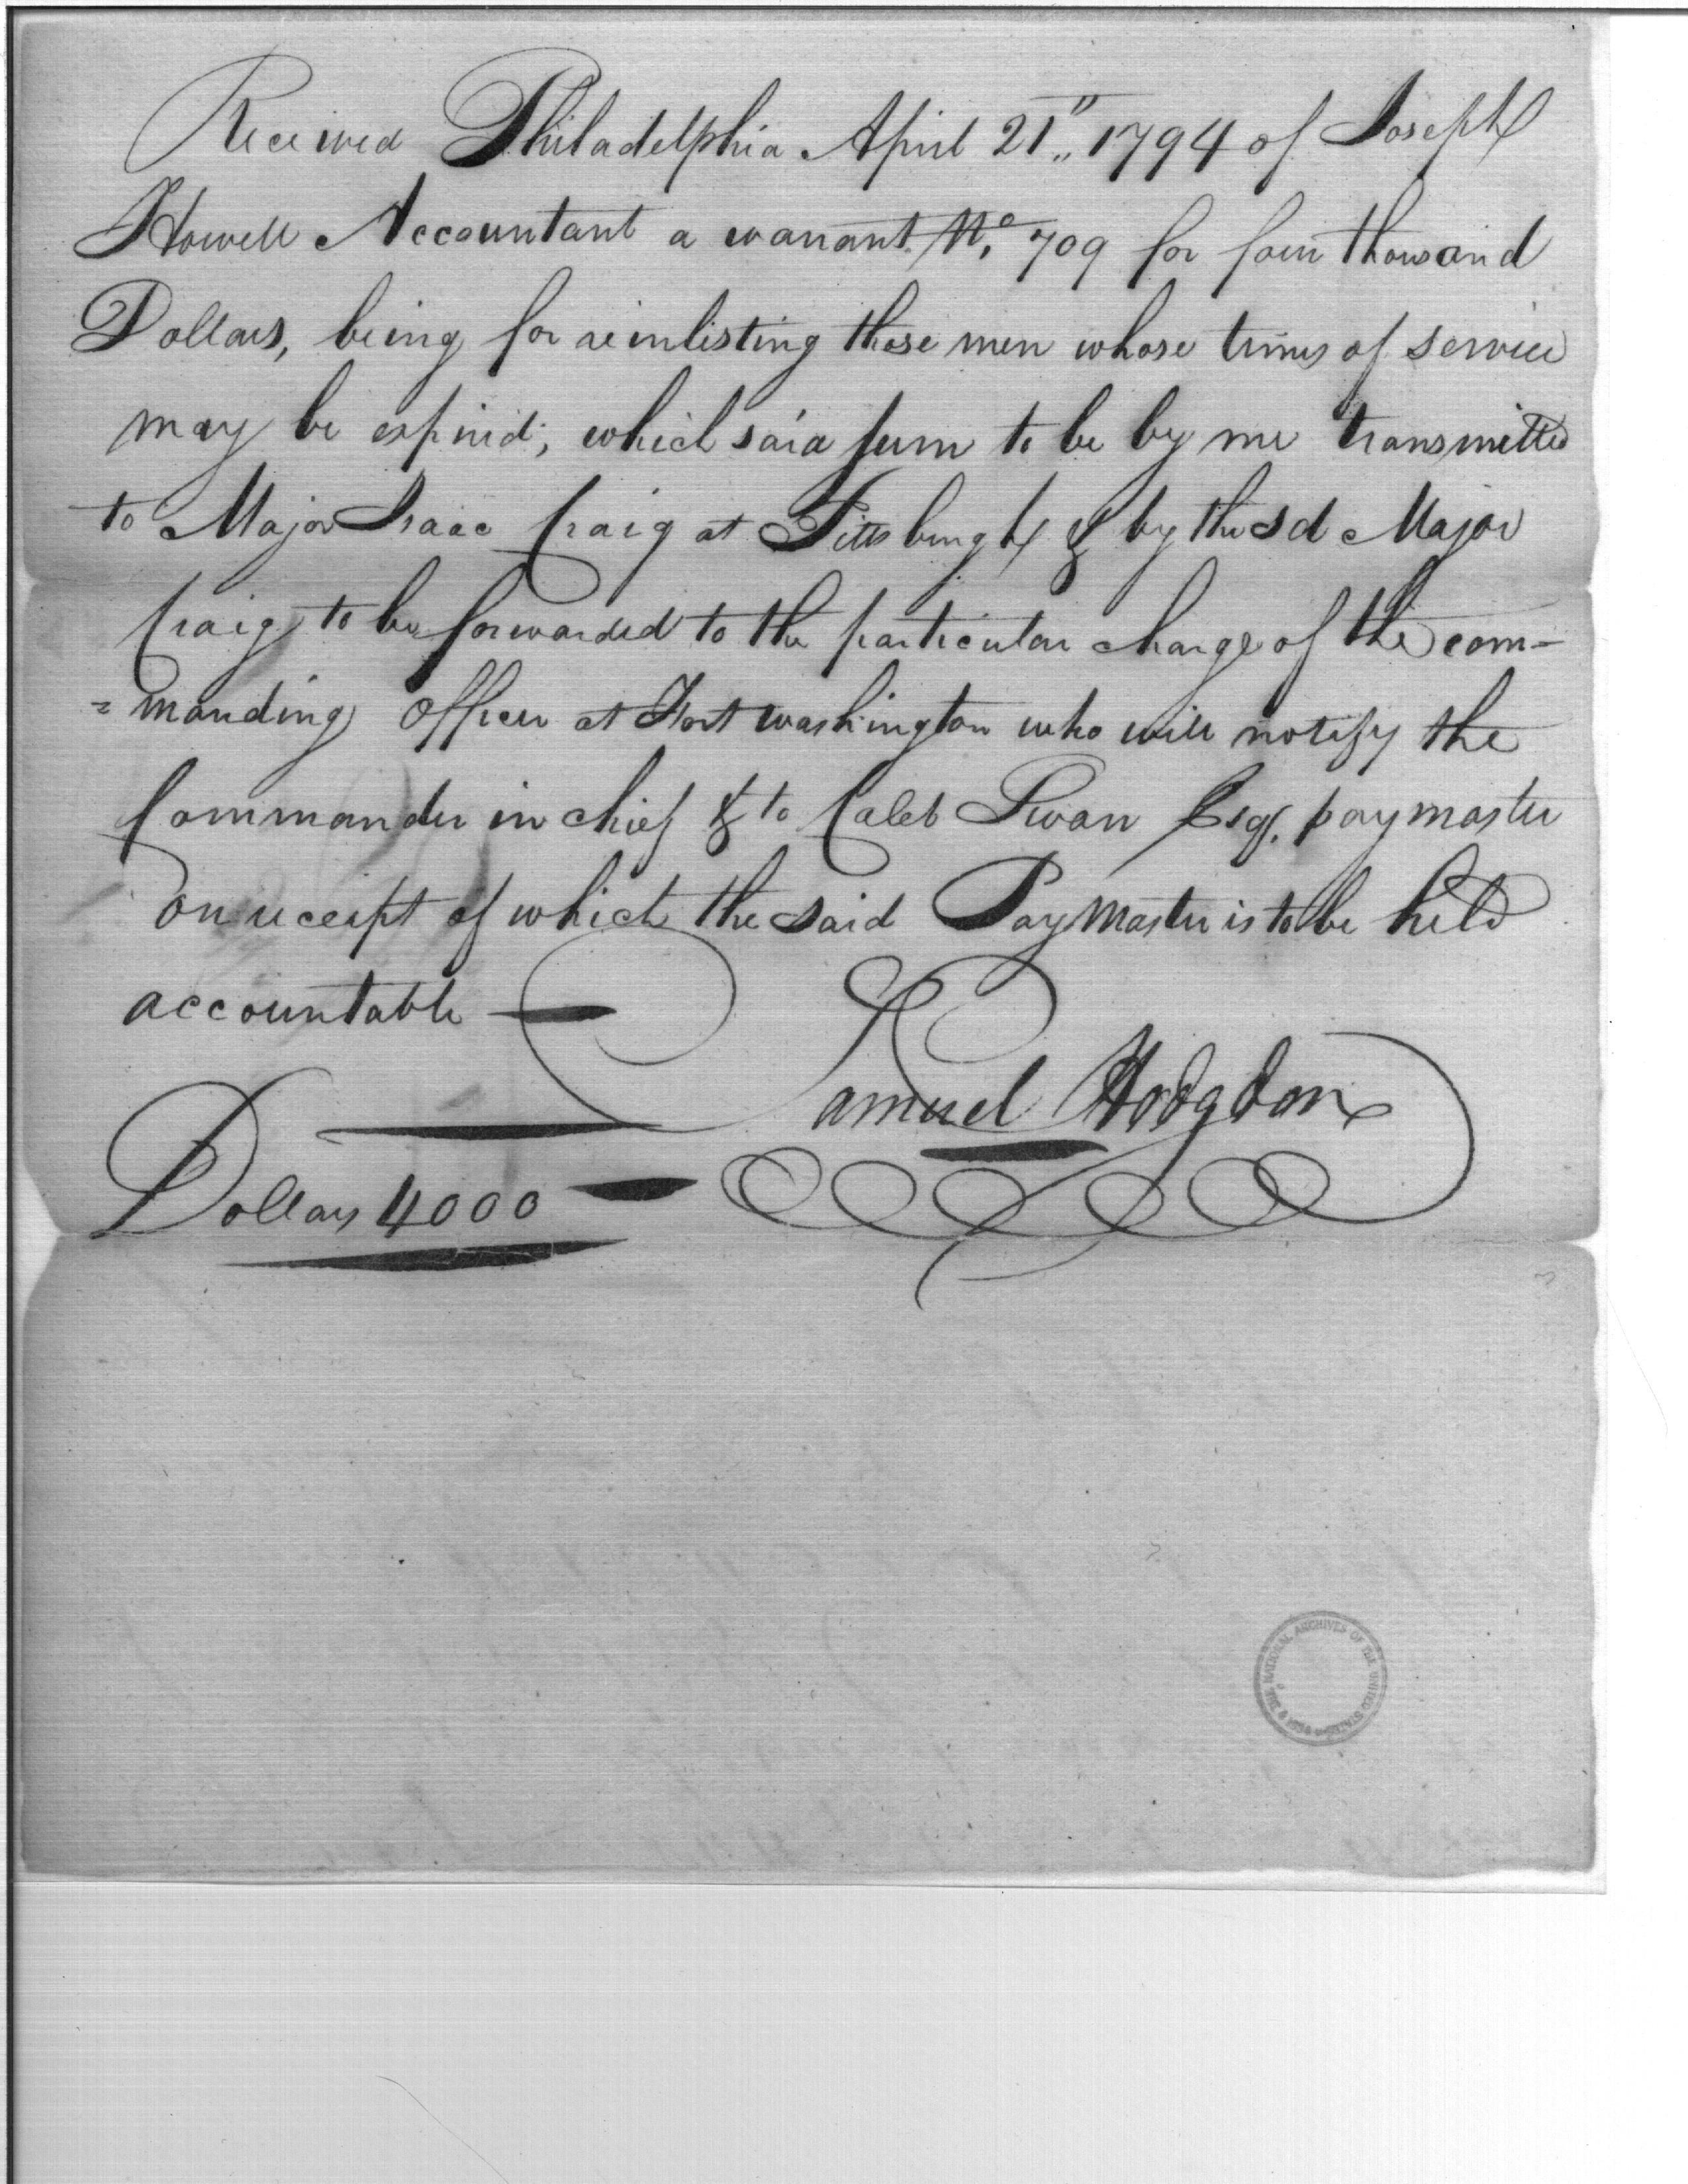 Received Philadelphia April 21" 1794 of Joseph
Howell Accountant a warrant No 709 for four thousand
Dollars, being for reinlisting those men whose times of service
may be expired; which said sum to be by me transmitted
to Major Isaac Craig at Pittsburgh & by the sd Major
Craig to be forwarded to the particular charge of the com-
=manding officer at Fort Washington who will notify the
Commander in chief & to Caleb Swan Esqr. paymaster
on receipt of which the said Paymaster is to be held
accountable —
Samuel Hodgdon
Dollars 4000
THE NATIONAL ARCHIVES OF THE UNITED STATES